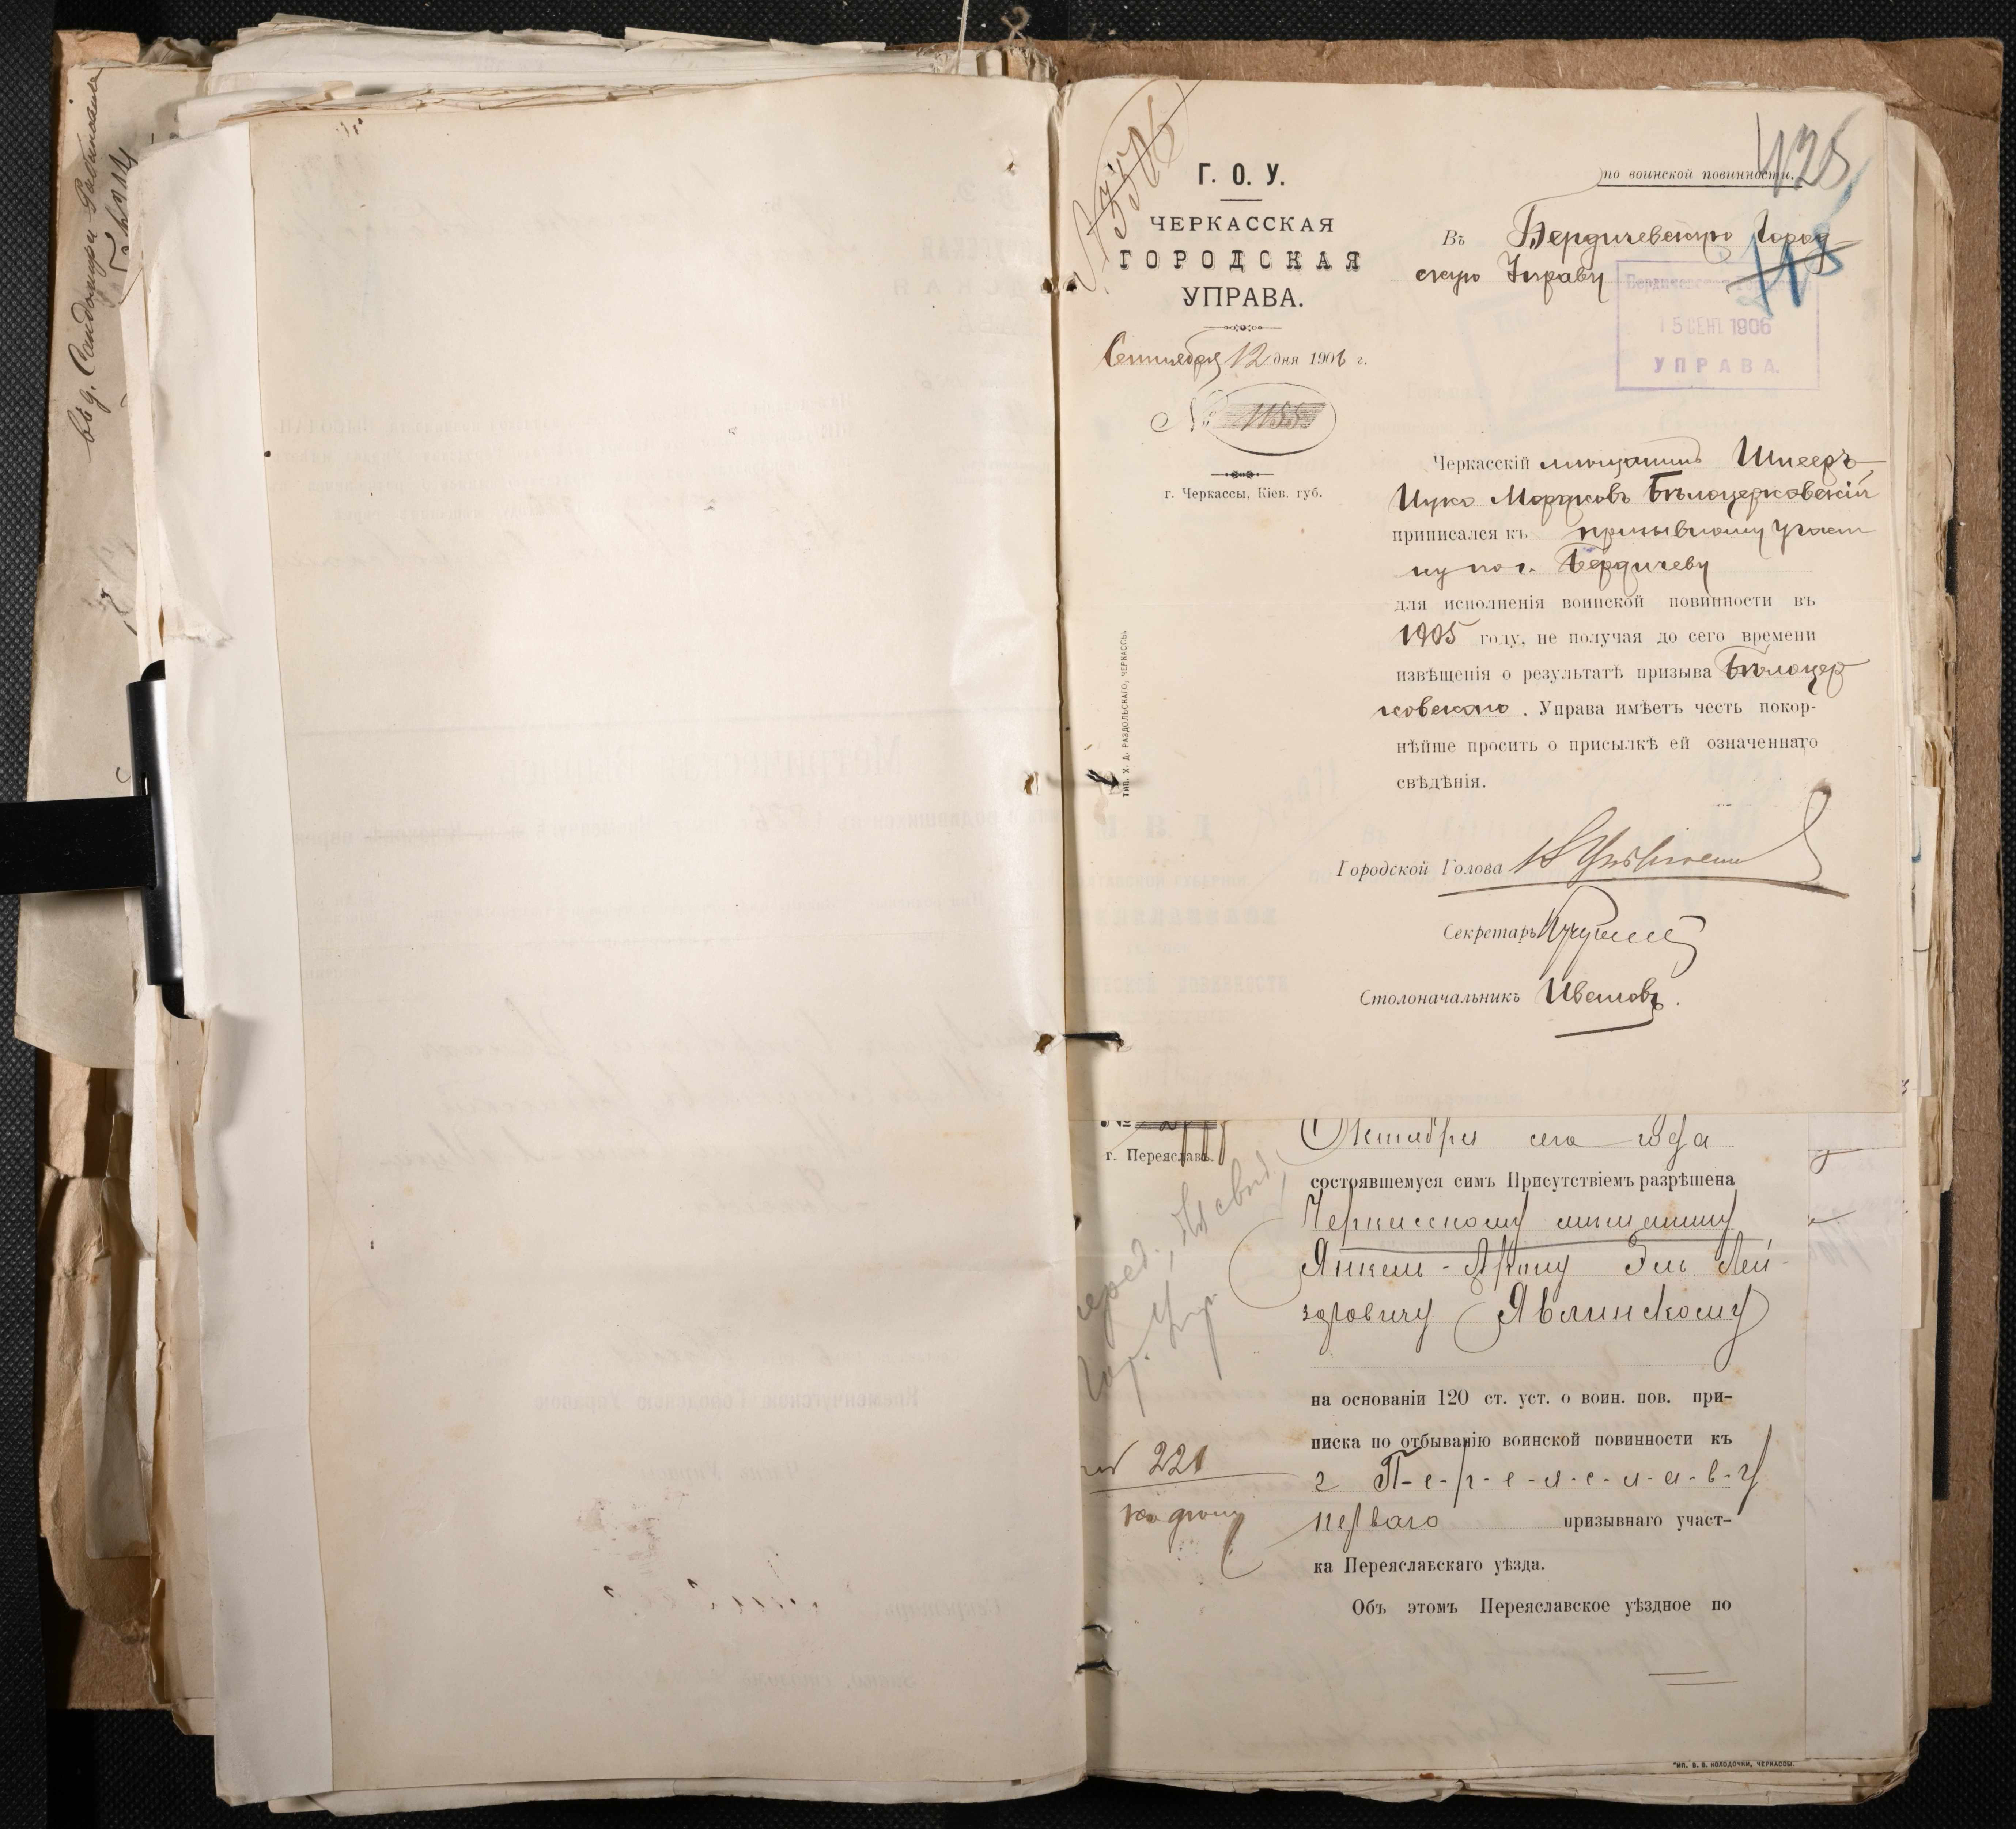 въ д. Сандомира Рабиновича
Г. О. У.
ЧЕРКАССКАЯ
ГОРОДСКАЯ
УПРАВА.
Сентября 12 дня 1906 г.
№ 11558
г. Черкассы, Кіев. губ.
ТИП. Х. Д. РАЗДОЛЬСКАГО, ЧЕРКАССЫ.
по воинской повинности.
125
118
Въ Бердичевскую Город-
скую Управу
Бердичевская Городская
15 СЕН. 1906
УПРАВА.
Черкасскій мѣщанинъ Шнееръ-
Нука Мордковъ Бѣлоцерковскій
приписался къ призывному участ
ку по г. Бердичеву
для исполненія воинской повинности въ
1905 году, не получая до сего времени
извѣщенія о результатѣ призыва Бѣлоцер
ковскаго. Управа имѣетъ честь покор-
нѣйше просить о присылкѣ ей означеннаго
свѣдѣнія.
Городской Голова
Секретарь
Столоначальникъ Ивановъ.
№
г. Переяславъ.
Октября сего года
состоявшемуся симъ Присутствіемъ разрѣшена
Черкасскому мѣщанину
Янкель-Арону Эль Лей-
зоровичу Явлинскому
на основаніи 120 ст. уст. о воин. пов. при-
писка по отбыванію воинской повинности къ
г П-е-р-е-я-с-л-а-в-у
перваго призывнаго участ-
ка Переяславскаго уѣзда.
Объ этомъ Переяславское уѣздное по
221
ТИП. В. В. КОЛОДОЧКИ, ЧЕРКАССЫ.